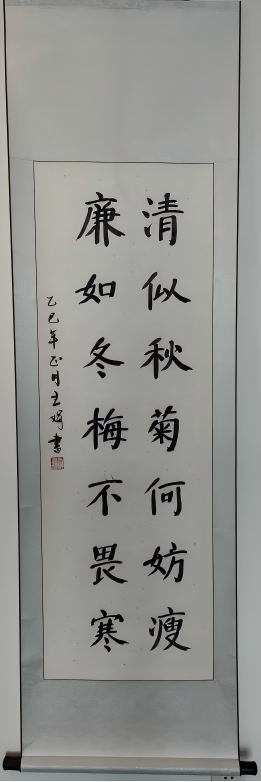 清似秋菊何妨瘦
廉如冬梅不畏寒
乙巳年正月王娟書